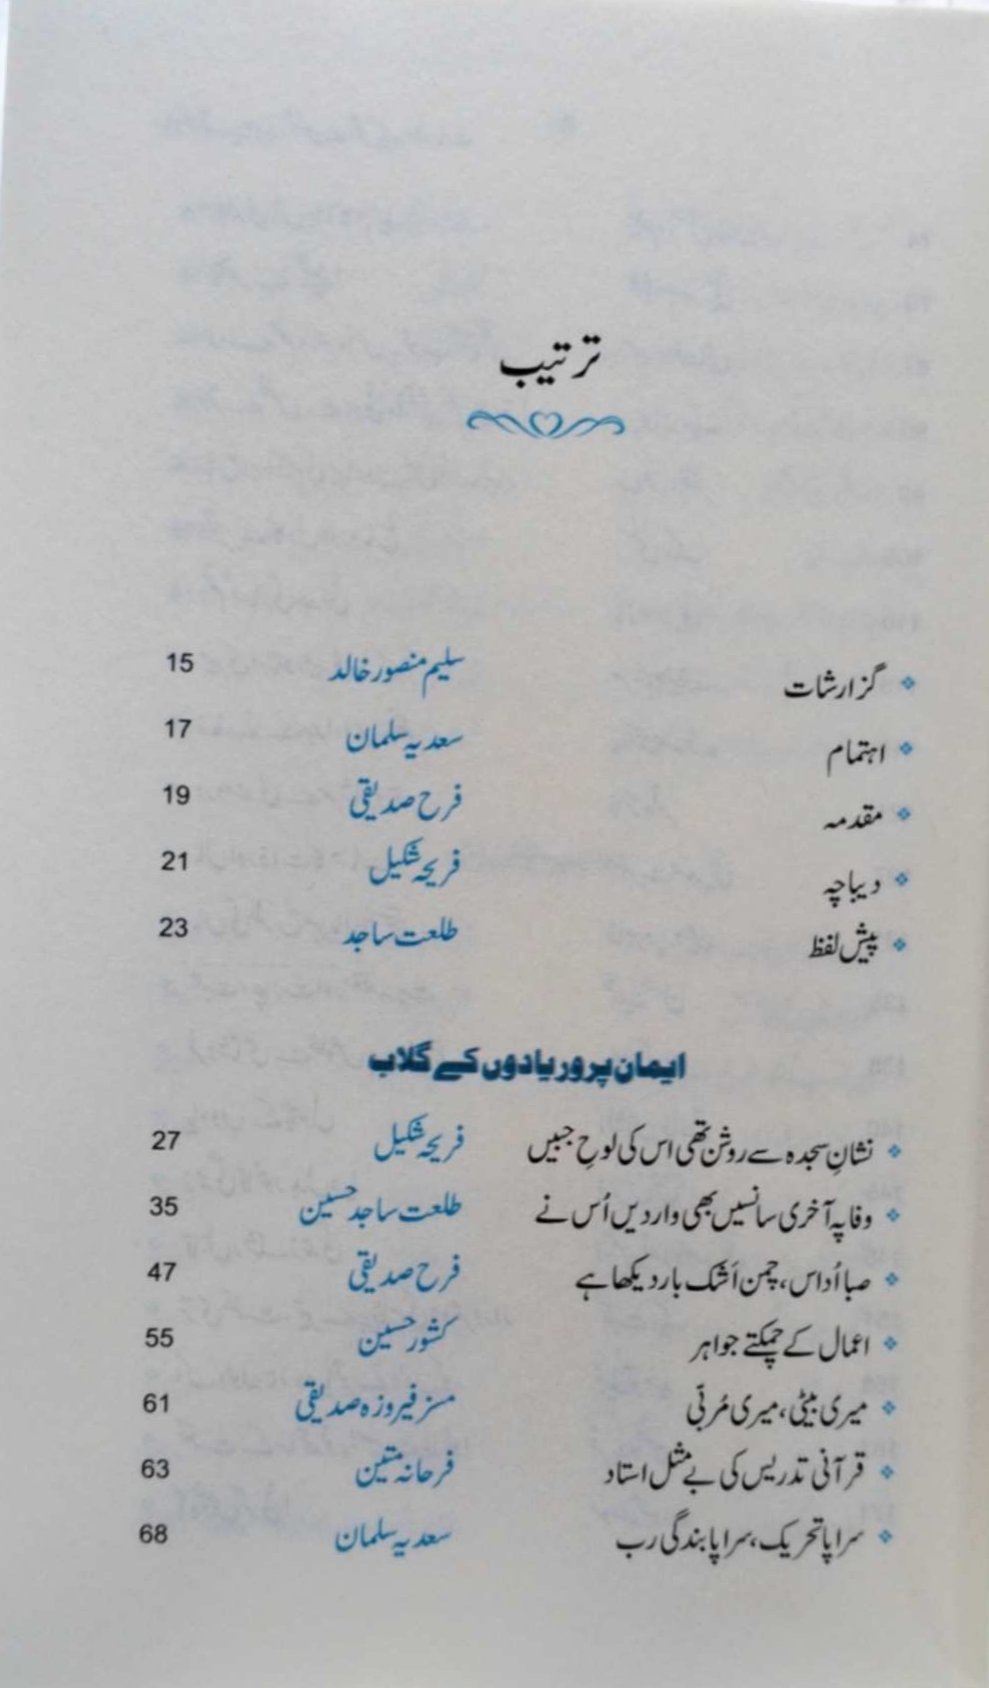 ترتیب
گزارشات سلیم منصور خالد 15
اہتمام سعدیہ سلمان 17
مقدمہ فرح صدیقی 19
دیباچہ فریحہ شکیل 21
پیش لفظ طلعت ساجد 23
ایمان پرور یادوں کے گلاب
نشانِ سجدہ سے روشن تھی اس کی لوحِ جبیں فریحہ شکیل 27
وفا پہ آخری سانسیں بھی وار دیں اُس نے طلعت ساجد حسین 35
صبا اُداس، چمن اَشک بار دیکھا ہے فرح صدیقی 47
اعمال کے چمکتے جواہر کشور حسین 55
میری بیٹی، میری مُربّی مسز فیروزہ صدیقی 61
قرآنی تدریس کی بے مثل استاد فرحانہ متین 63
سراپا تحریک، سراپا بندگی رب سعدیہ سلمان 68